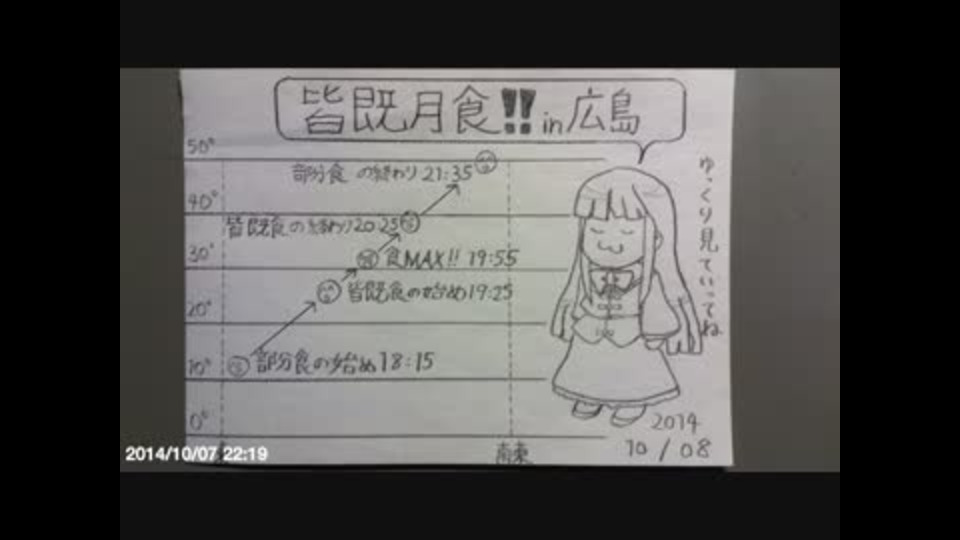 皆既月食!! in 広島
ゆっくり見ていってね
50°
部分食 の終わり 21:35
40°
皆既食の終わり20:25
30°
食MAX!! 19:55
皆既食の始め19:25
20°
10°
部分食の始め18:15
0°
南東
2014
10/08
2014/10/07 22:19